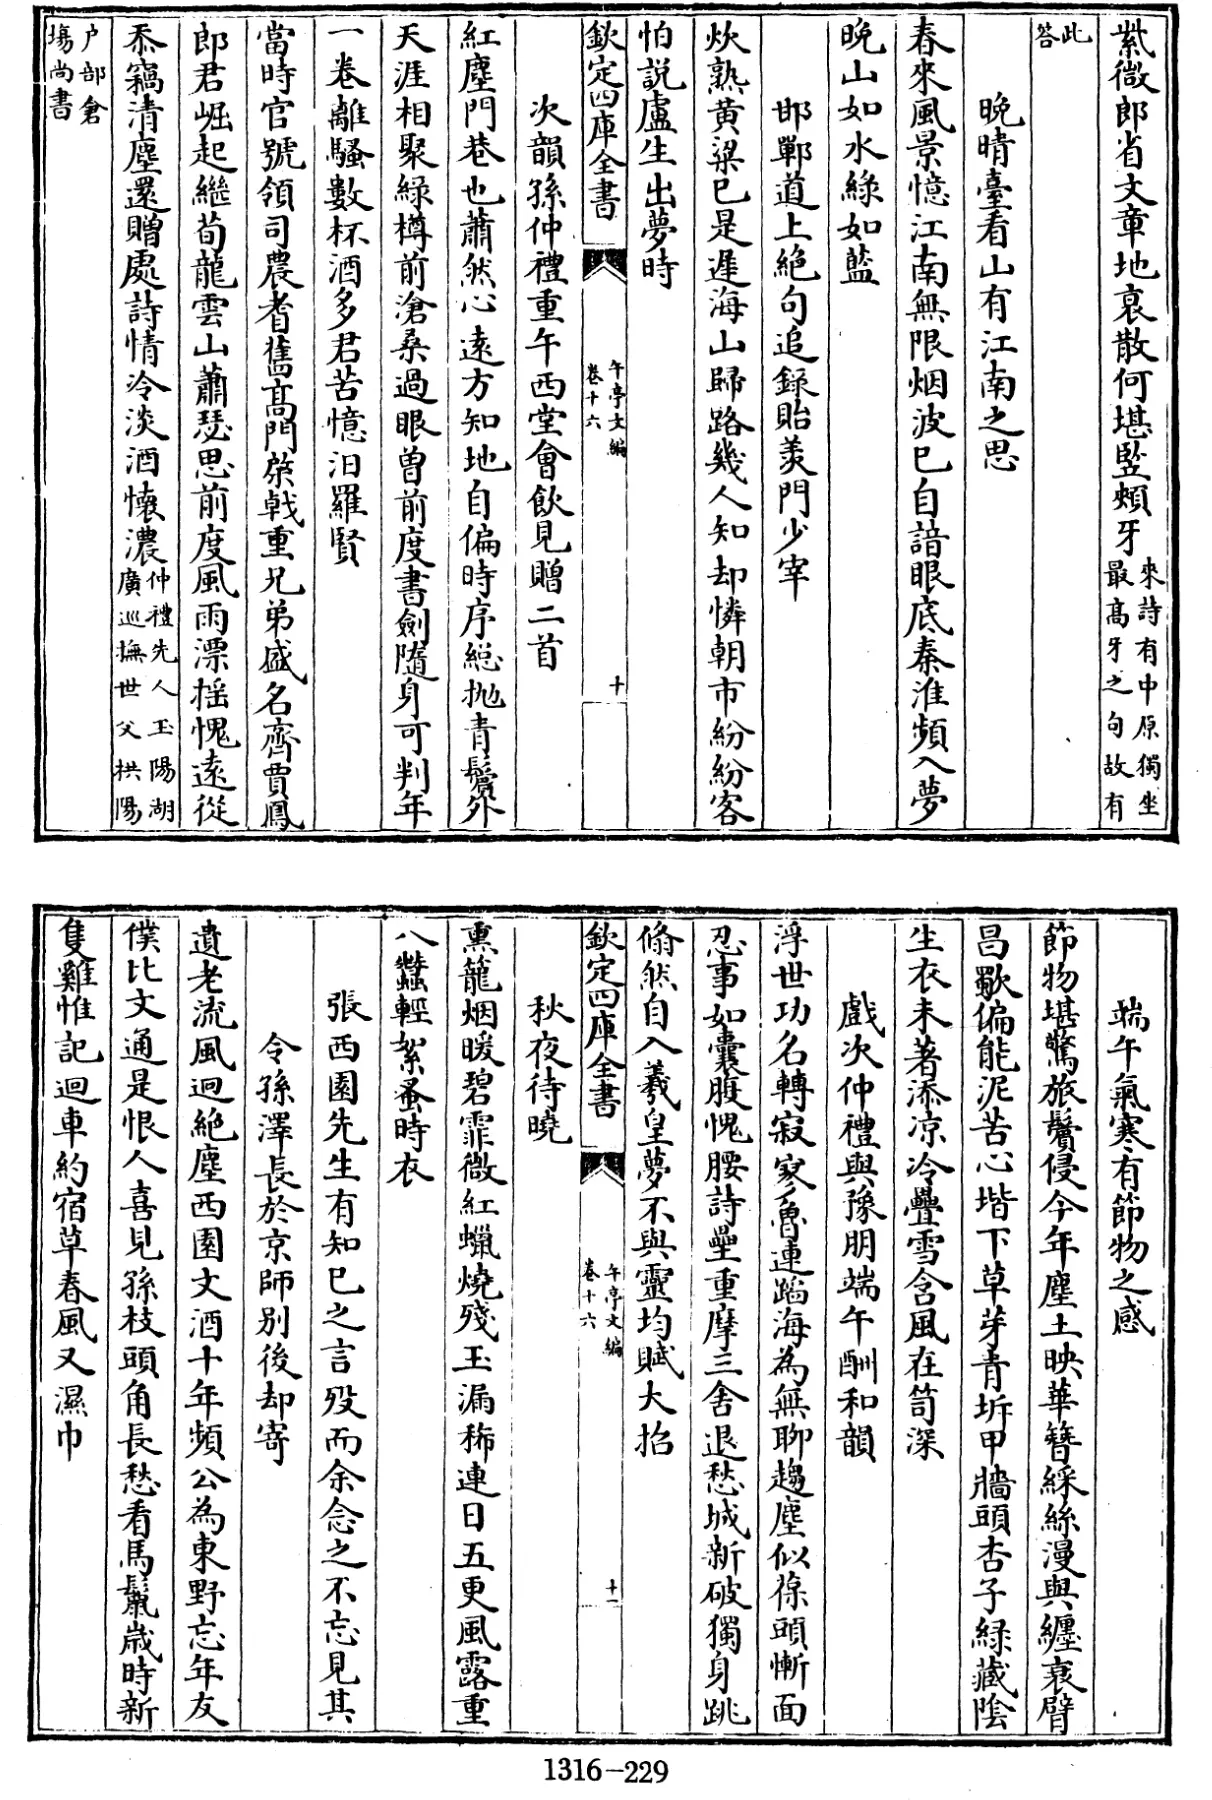 紫微郎省文章地衰散何堪竪頰牙來詩有中原獨坐
最髙牙之句故有
此
答
晩晴臺看山有江南之思
春來風景憶江南無限烟波已自諳眼底秦淮頻入夢
晩山如水綠如藍
邯鄲道上絶句追錄貽羡門少宰
炊熟黄粱已是遲海山歸路幾人知却憐朝市紛紛客
怕説盧生出夢時
欽定四庫全書
午亭文編
卷十六
十
次韻孫仲禮重午西堂會飲見贈二首
紅塵門巷也蕭然心遠方知地自偏時序總抛青鬢外
天涯相聚綠樽前滄桑過眼曾前度書劍隨身可判年
一卷離騷數杯酒多君苦憶汨羅賢
當時官號領司農耆舊髙門棨戟重兄弟盛名齊賈鳳
郎君崛起繼荀龍雲山蕭瑟思前度風雨漂揺愧遠從
忝竊清塵還贈處詩情冷淡酒懐濃仲禮先人玉陽湖
廣巡撫世父拱陽
户部倉
塲尚書
端午氣寒有節物之感
節物堪驚旅鬢侵今年塵土映華簪綵絲漫與纏衰臂
昌歜偏能泥苦心堦下草芽青坼甲牆頭杏子綠藏陰
生衣未著添凉冷疊雪含風在笥深
戲次仲禮與豫朋端午酬和韻
浮世功名轉寂寥魯連蹈海為無聊趨塵似葆頭慚面
忍事如囊腹愧腰詩壘重摩三舍退愁城新破獨身跳
翛然自入羲皇夢不與靈均賦大招
欽定四庫全書
午亭文編
卷十六
十一
秋夜待曉
熏籠烟暖碧霏微紅蠟燒殘玉漏稀連日五更風露重
八蠶輕絮蚤時衣
張西園先生有知已之言殁而余念之不忘見其
令孫澤長於京師别後却寄
遺老流風迥絶塵西園文酒十年頻公為東野忘年友
僕比文通是恨人喜見孫枝頭角長愁看馬鬛嵗時新
隻雞惟記迴車約宿草春風又濕巾
1316-229